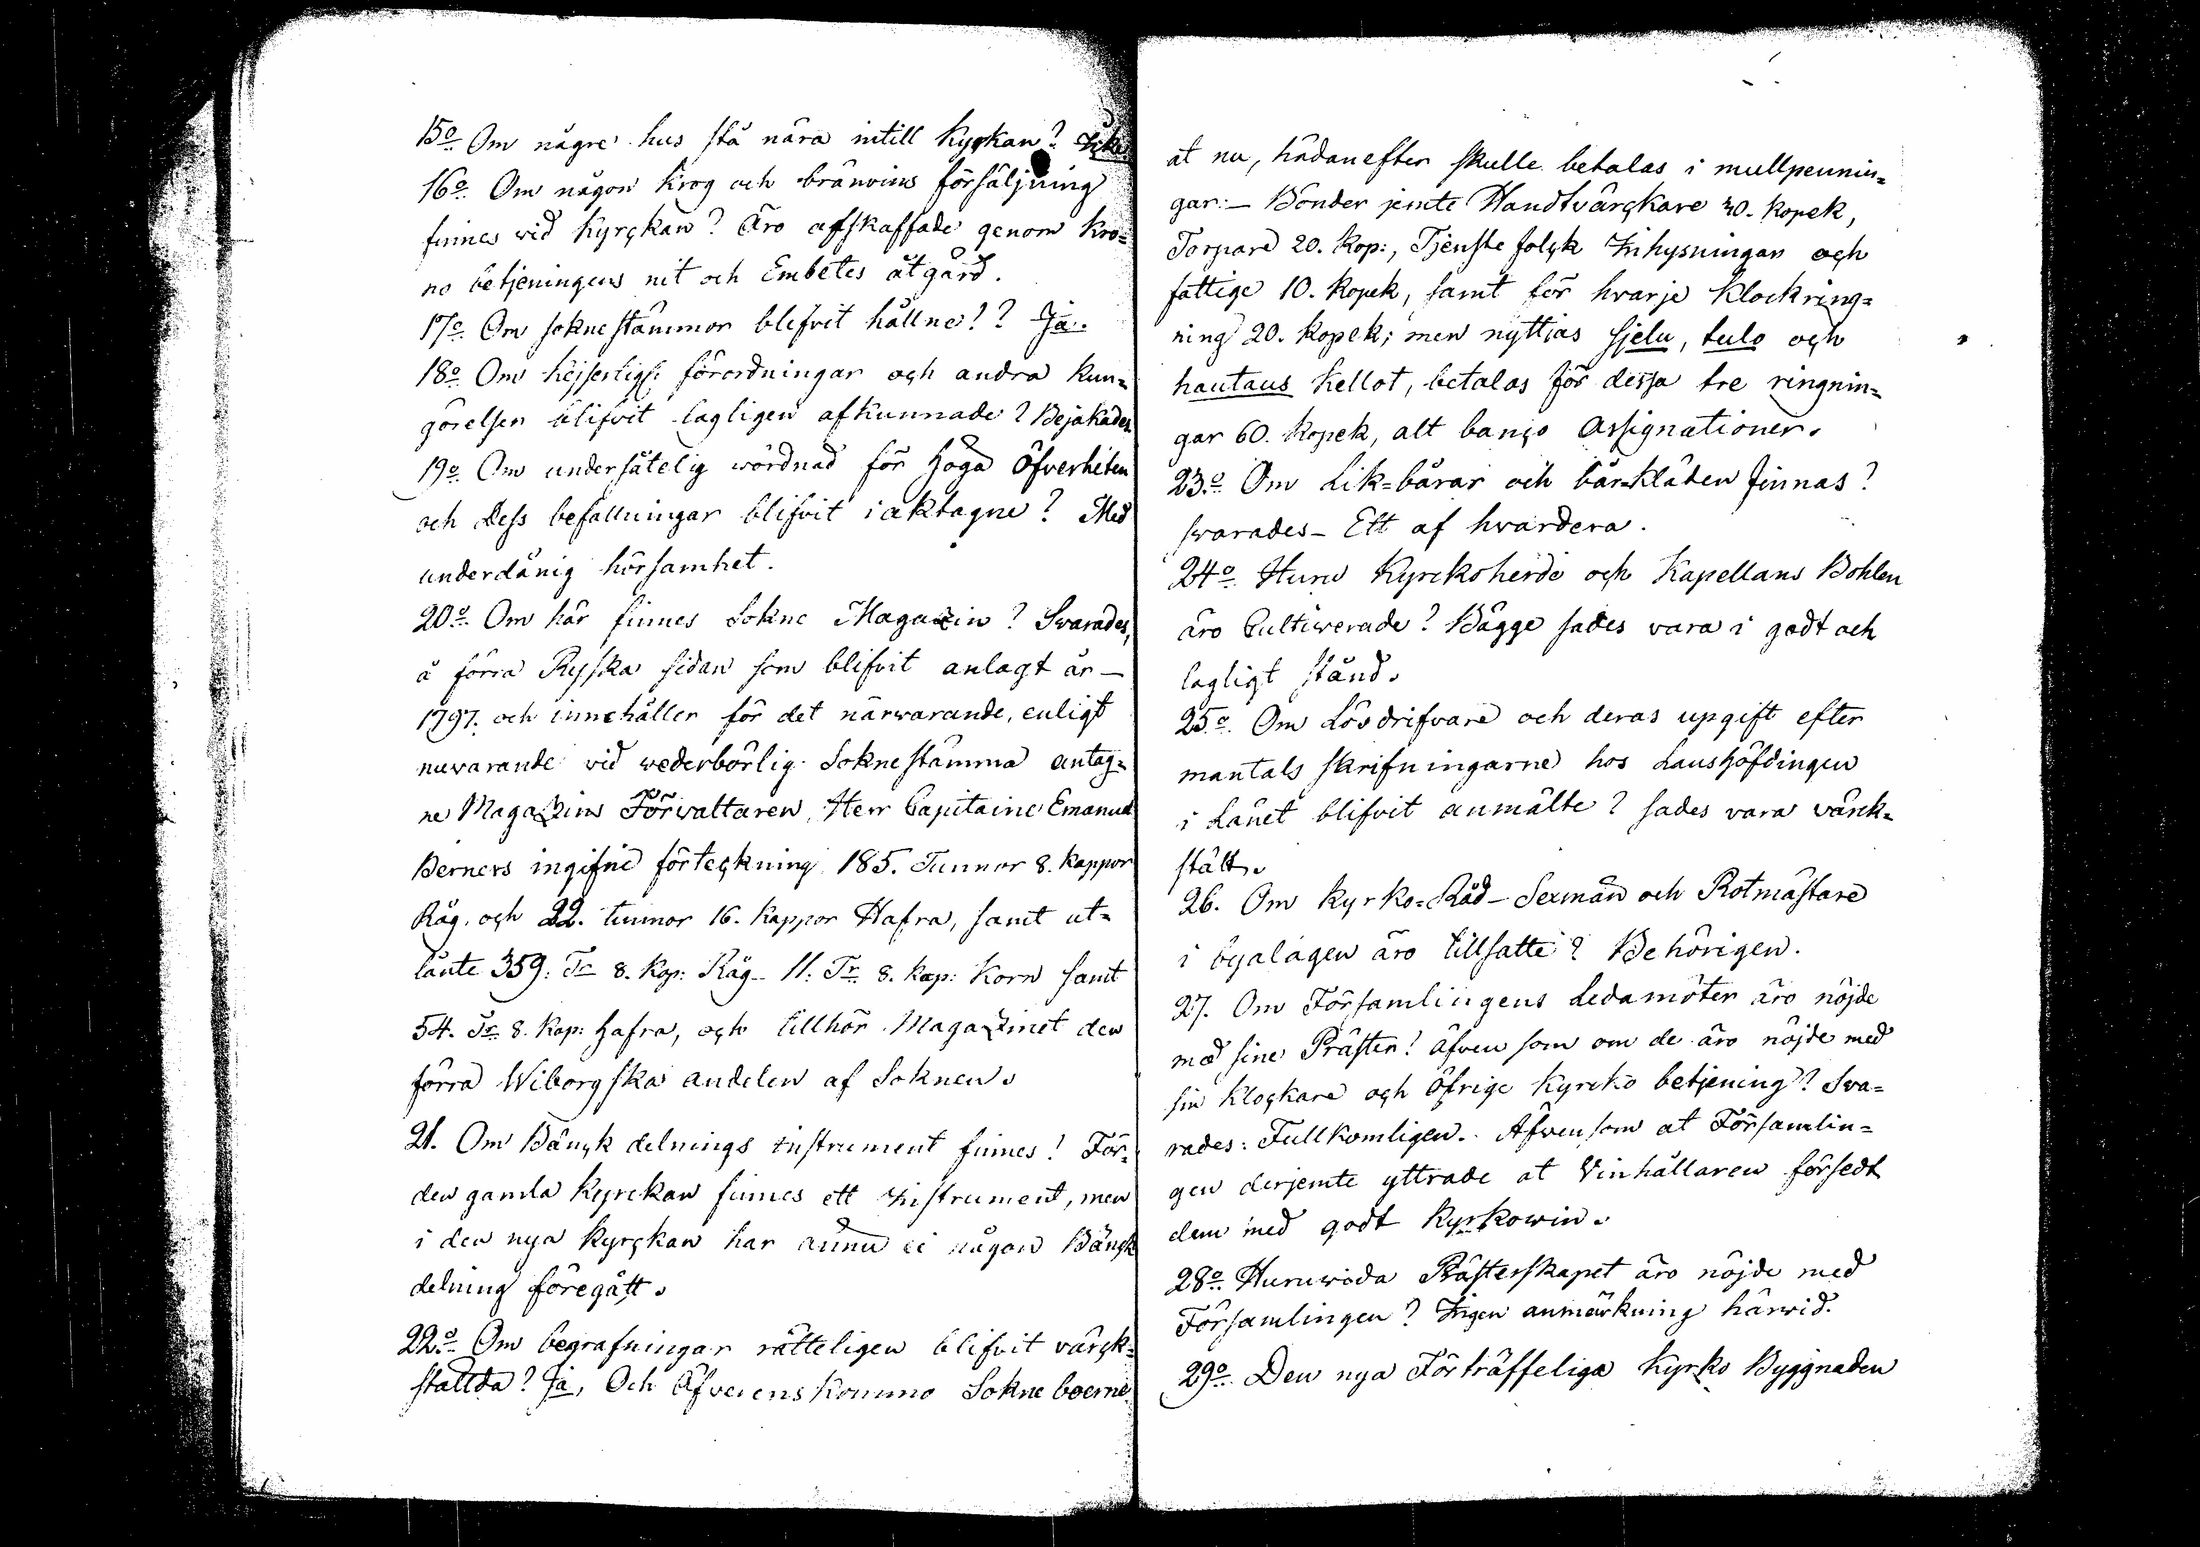 15o Om någre hus stå nära intill Kyrkan? Icke
16o Om någon Krog och bränvins försäljning
finnes vid Kyrckan? Äro afskaffade genom Kro=
no betjeningens nit och Embetes åtgärd.
17o Om sokne stämmor blifvit hållne!? Ja.
18o Om Kejserlige: förordningar och andra Kun=
görelser blifvit lagligen afkunnade? Bejakades
19o Om undersåtelig wördnad för höga Öfverheten
och dess befallningar blifvit iakttagne? Med
underdånig hörsamhet.
20o Om här finnes Sokne Magazin? Svarades,
å förra Ryska sidan som blifvit anlagt år —
1797. och innehåller för det närvarande, enligt
nuvarande vid wederbörlig Sokne stämma antag=
ne Magazins Förvaltaren, Herr Capitaine Emanuel
Berners ingifne förteckning 185. Tunnor 8. kappor
Råg. och 22. tunnor 16. kappor Hafra, samt ut=
lånte 359: Tr 8. Kap: Råg — 11. Tr 8. kap: Korn samt
54. Tr 8. Kap: hafra, och tillhör Magazinet den
förra Wiborgska andelen af Soknen.
21. Om Bänck delnings instrument finnes! För
den gamla Kyrckan finnes ett instrument, men
i den nya Kyrckan har ännu ei någon Bänck
delning föregått.
22o Om begrafningar rätteligen blifvit värck=
stältda? Ja, Och Öfverens kommo Sokne boerne
at nu, hädanefter skulle betalas i mullpennin=
gar: — Bönder jemte Handtvärckare 30. Kopek,
Torpare 20. Kop:, Tjenste folck Inhysningar och
fattige 10. Kopek, samt för hvarje Klockring=
ning 20. Kopek; men nyttjas sjelu, tulo och
hautaus Kellot, betalas för dessa tre ringnin=
gar 60. Kopek, alt banco Assignationer.
23.o Om Lik=bårar och bår-kläden finnas?
svarades — Ett af hvardera.
24o Huru Kyrckoherde och Kapellans Bohlen
äro Cultiverade? Bägge sades vara i godt och
lagligt stånd.
25o Om Lösdrifvare och deras upgift efter
mantals skrifningarne hos Landshöfdingen
i Länet blifvit anmälte? sades vara värck=
stält.
26. Om Kyrko=Råd — Sexmän och Rotmästare
i byalagen äro tillsatte? Behörigen.
27. Om Församlingens Ledamöter äro nöjde
med sine Präster! äfven som om de äro nöjde med
sin Klockare och Öfrige Kyrcko betjening? Sva=
rades: Fullkomligen. Äfvensom at Församlin=
gen derjemte yttrade at Vinhållaren försedt
dem med godt Kyrkowin.
28o Huruwida Prästerskapet äro nöjde med
Församlingen? Ingen anmärkning härvid.
29o Den nya Förträffeliga Kyrko Byggnaden